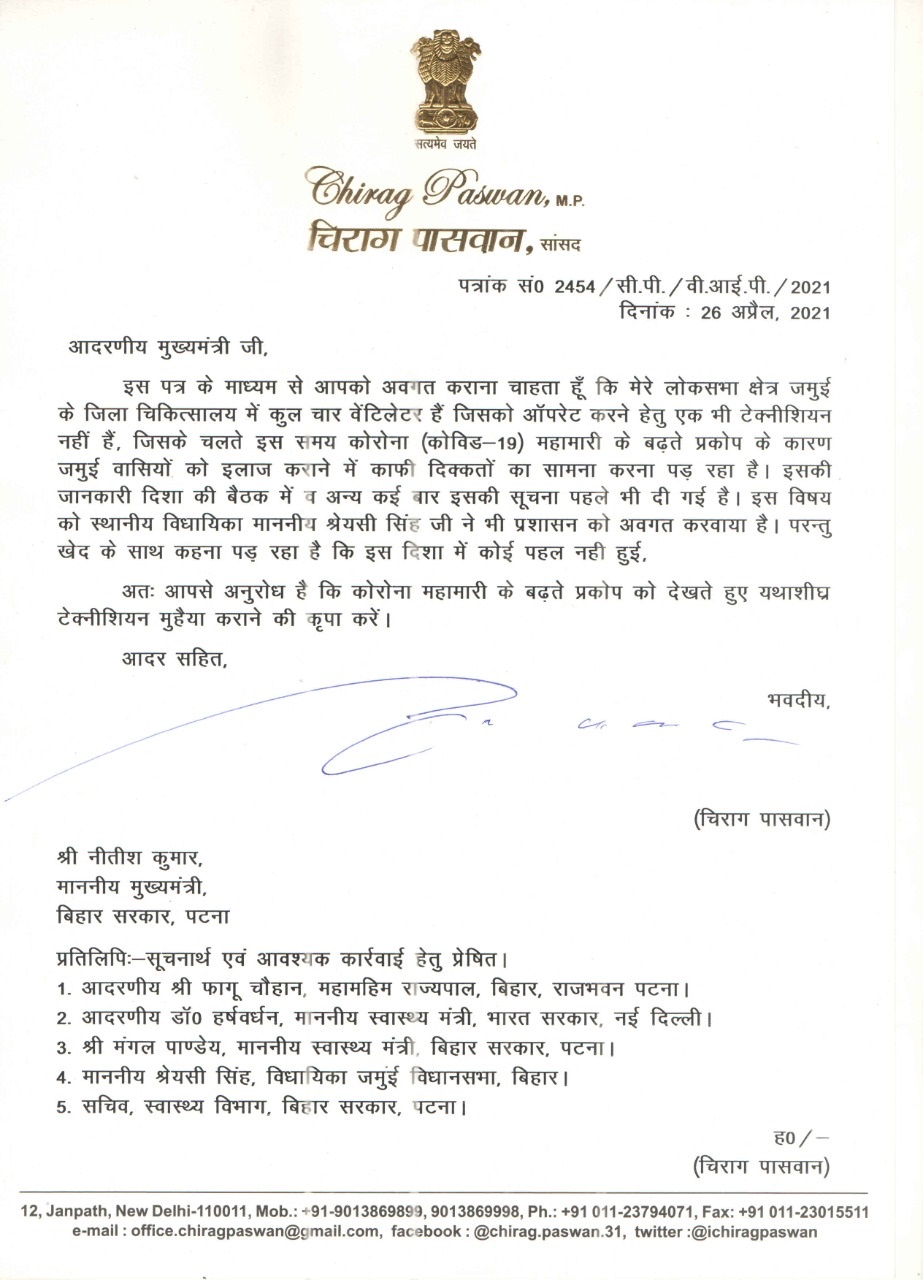 सत्यमेव जयते
Chirag Paswan, M.P.
चिराग पासवान, सांसद
पत्रांक सं0 2454/सी.पी./वी.आई.पी./2021
दिनांक : 26 अप्रैल, 2021
आदरणीय मुख्यमंत्री जी,
इस पत्र के माध्यम से आपको अवगत कराना चाहता हूँ कि मेरे लोकसभा क्षेत्र जमुई
के जिला चिकित्सालय में कुल चार वेंटिलेटर हैं जिसको ऑपरेट करने हेतु एक भी टेक्नीशियन
नहीं हैं, जिसके चलते इस समय कोरोना (कोविड–19) महामारी के बढ़ते प्रकोप के कारण
जमुई वासियों को इलाज कराने में काफी दिक्कतों का सामना करना पड़ रहा है। इसकी
जानकारी दिशा की बैठक में व अन्य कई बार इसकी सूचना पहले भी दी गई है। इस विषय
को स्थानीय विधायिका माननीय श्रेयसी सिंह जी ने भी प्रशासन को अवगत करवाया है। परन्तु
खेद के साथ कहना पड़ रहा है कि इस दिशा में कोई पहल नही हुई,
अतः आपसे अनुरोध है कि कोरोना महामारी के बढ़ते प्रकोप को देखते हुए यथाशीघ्र
टेक्नीशियन मुहैया कराने की कृपा करें।
आदर सहित,
भवदीय,
(चिराग पासवान)
श्री नीतीश कुमार,
माननीय मुख्यमंत्री,
बिहार सरकार, पटना
प्रतिलिपिः–सूचनार्थ एवं आवश्यक कार्रवाई हेतु प्रेषित।
1. आदरणीय श्री फागू चौहान, महामहिम राज्यपाल, बिहार, राजभवन पटना।
2. आदरणीय डॉ0 हर्षवर्धन, माननीय स्वास्थ्य मंत्री, भारत सरकार, नई दिल्ली।
3. श्री मंगल पाण्डेय, माननीय स्वास्थ्य मंत्री, बिहार सरकार, पटना।
4. माननीय श्रेयसी सिंह, विधायिका जमुई विधानसभा, बिहार।
5. सचिव, स्वास्थ्य विभाग, बिहार सरकार, पटना।
ह0/–
(चिराग पासवान)
12, Janpath, New Delhi-110011, Mob.: +91-9013869899, 9013869998, Ph.: +91 011-23794071, Fax: +91 011-23015511
e-mail : office.chiragpaswan@gmail.com, facebook : @chirag.paswan.31, twitter :@ichiragpaswan